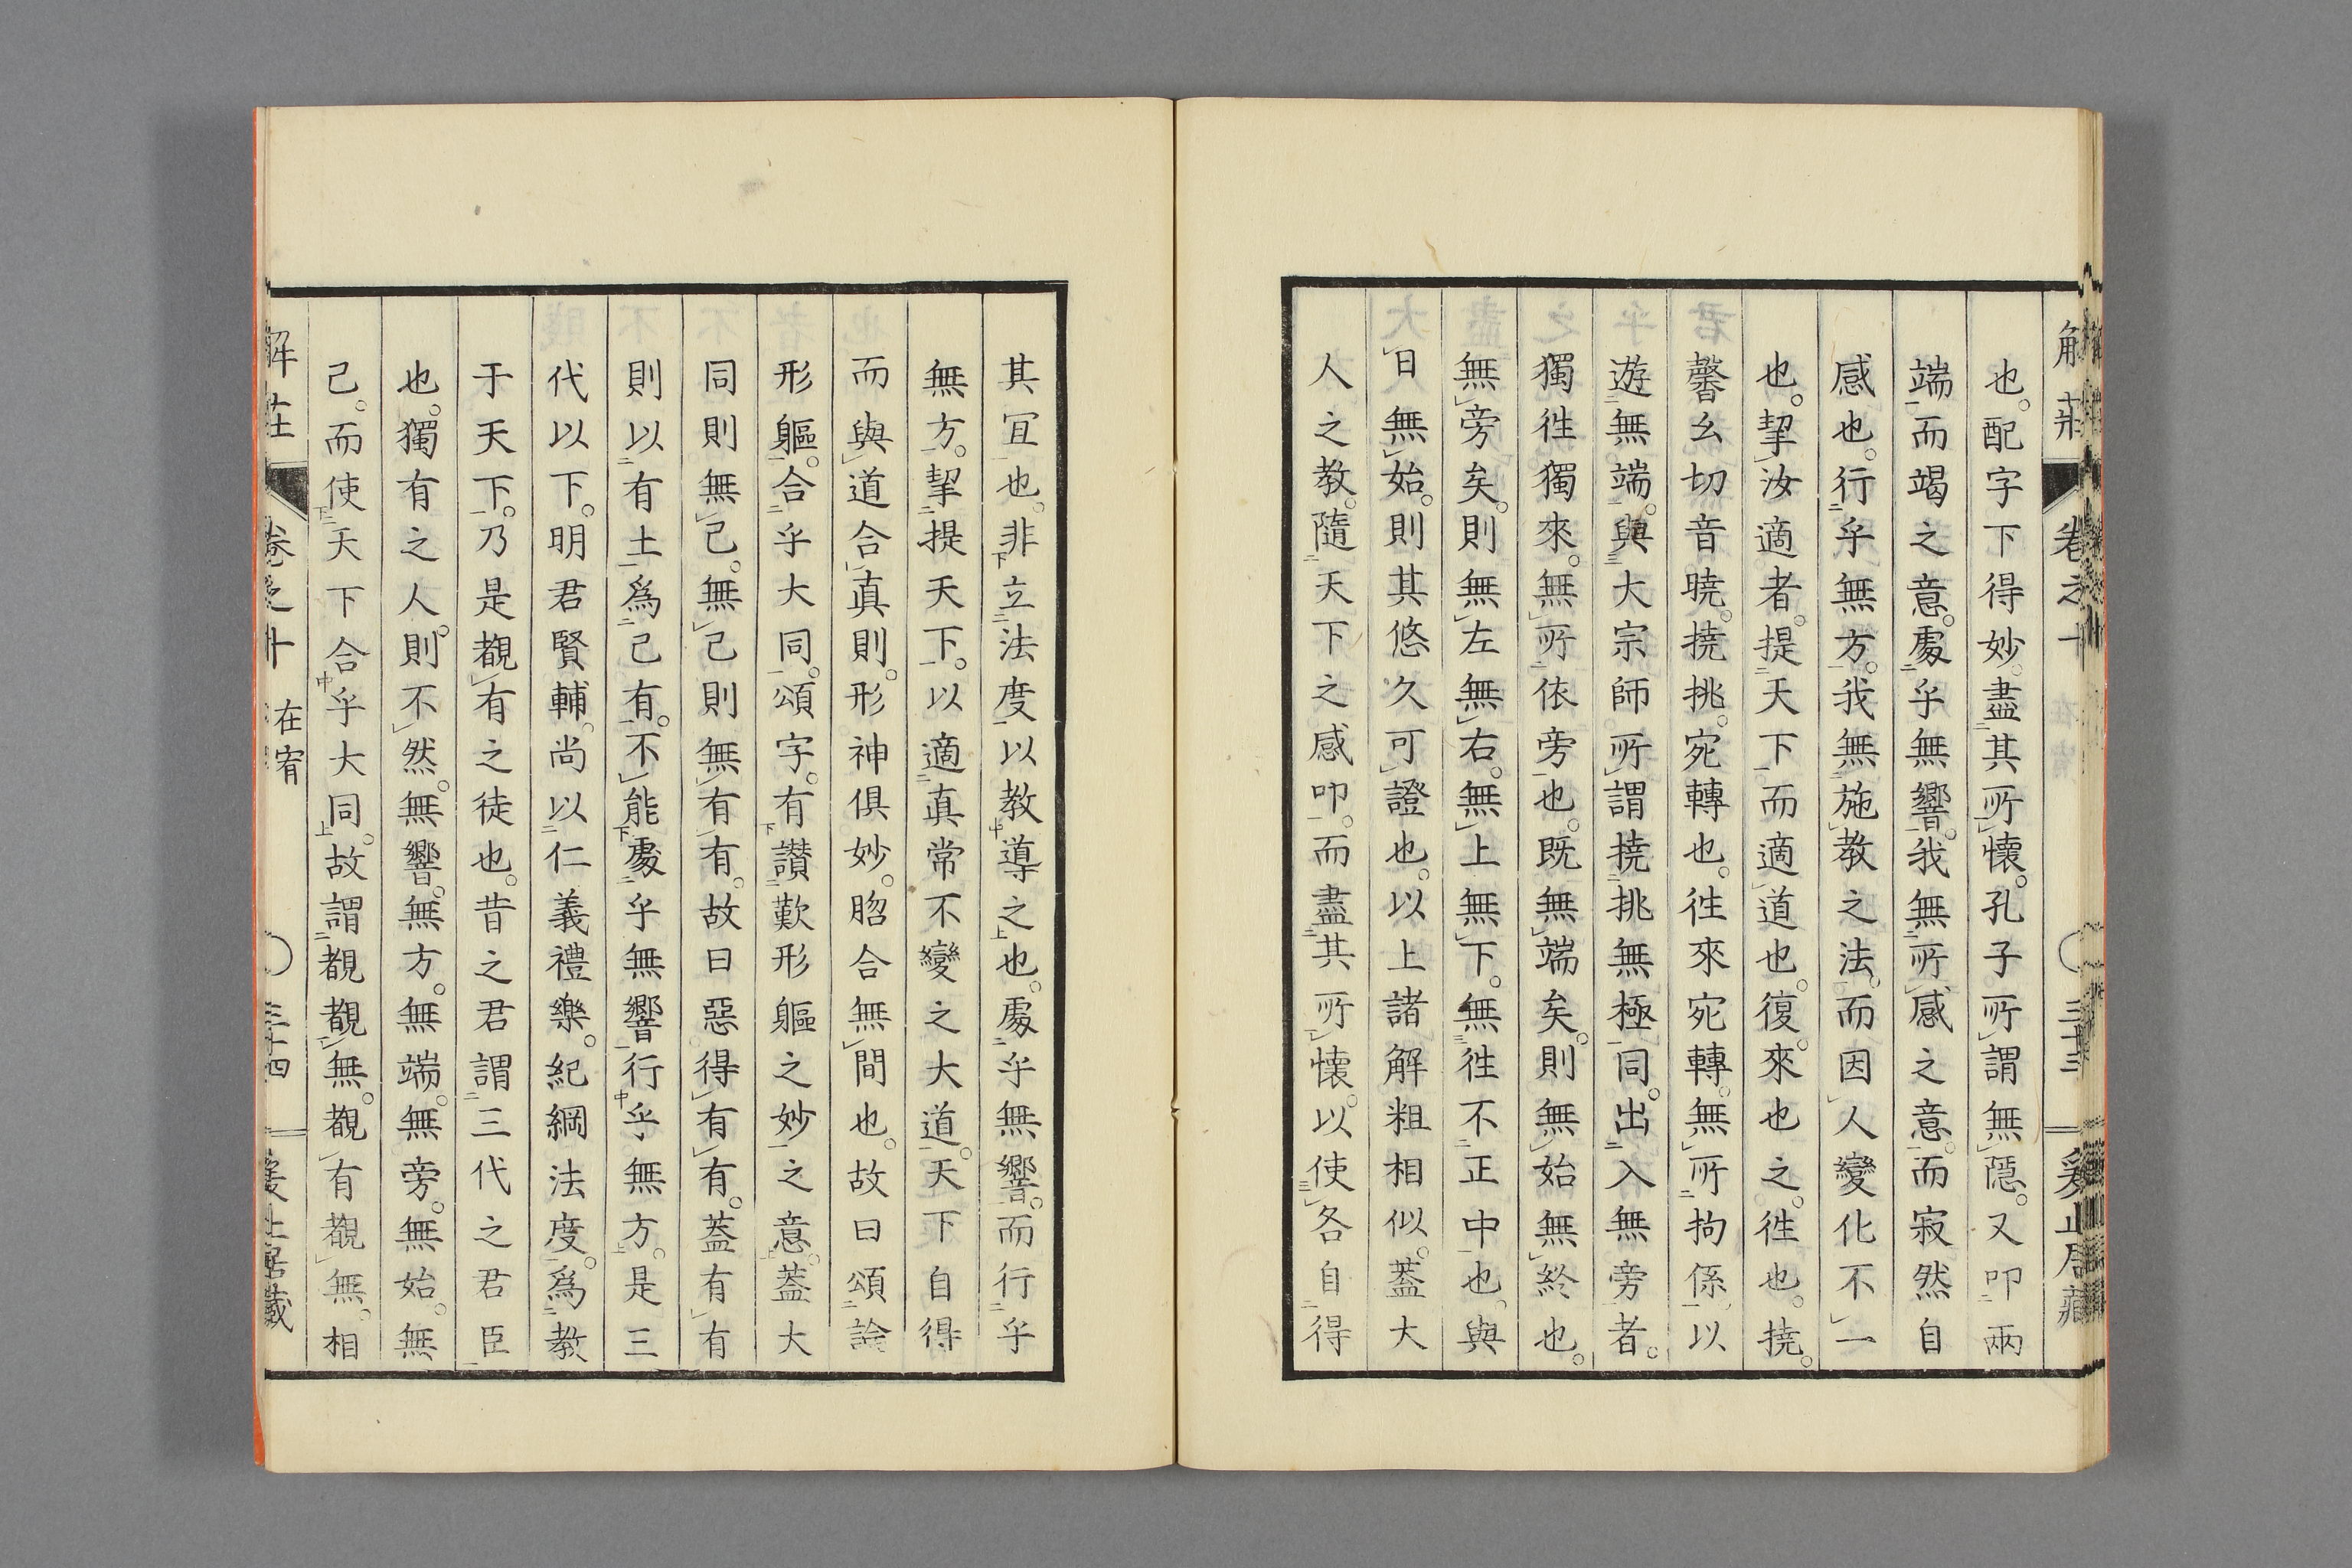 也。配字下得妙。盡其所懷。孔子所謂無隱。又叩兩
端而竭之意。處乎無響。我無所感之意。而寂然自
感也。行乎無方。我無施教之法。而因人變化不一
也。挈汝適者。提天下而適道也。復。來也之。徃也。撓。
馨幺切音曉。撓挑。宛轉也。徃來宛轉。無所拘係。以
遊無端。與大宗師所謂撓挑無極同。出入無旁者。
獨徃獨來。無所依旁也。既無端矣。則無始無終也。
無旁矣。則無左無右。無上無下。無徃不正中也。與
日無始。則其悠久可證也。以上諸解粗相似。蓋大
人之教。隨天下之感叩。而盡其所懷。以使各自得
解莊 卷之十 三十三
其宜也。非立法度以教導之也。處乎無響。而行乎
無方。挈提天下。以適真常不變之大道。天下自得
而與道合真則。形神俱妙。脗合無間也。故曰頌論
形軀。合乎大同。頌字。有讚歎形軀之妙之意。蓋大
同則無己。無己則無有有。故曰惡得有有。蓋有有
則以有土爲己有。不能處乎無響行乎無方。是三
代以下。明君賢輔。尚以仁義禮樂。紀綱法度。爲教
于天下。乃是覩有之徒也。昔之君謂三代之君臣
也。獨有之人。則不然。無響。無方。無端。無旁。無始。無
己。而使天下合乎大同。故謂覩覩無。覩有覩無。相
解莊 卷之十 在宥 三十四